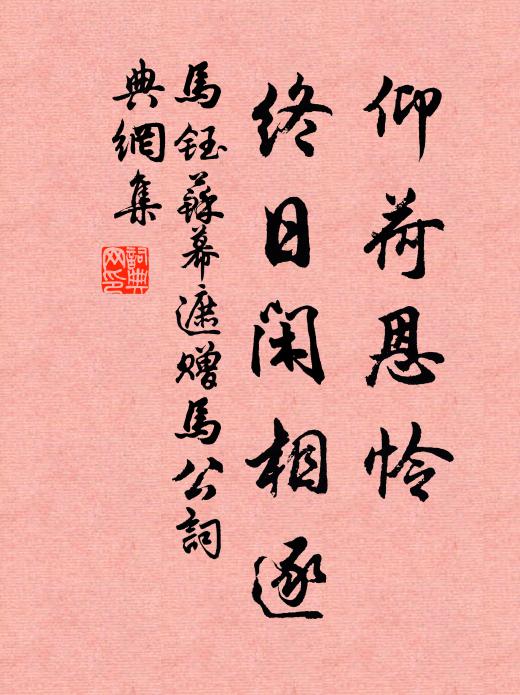 仰荷恩怜
终日闲相逐
馬鈺蘇幕遮赠馬公詞
典網集
詞典网印